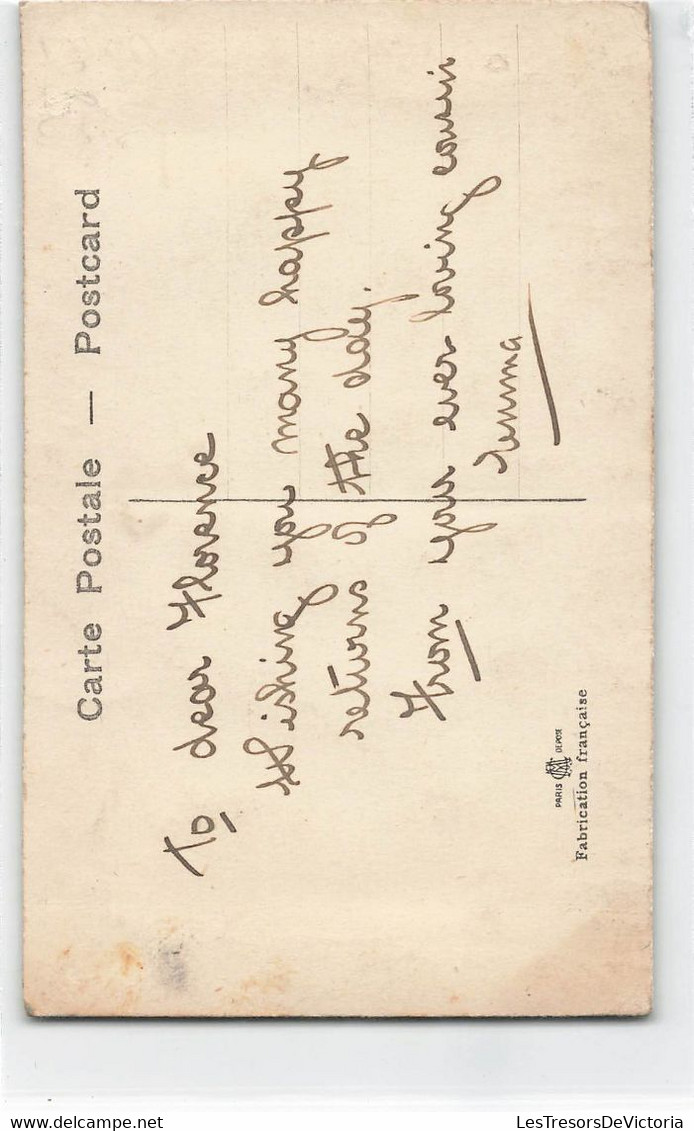 Carte Postale — Postcard
To dear Florence
Wishing you many happy
returns of the day.
From your ever loving cousin
Emma
PARIS DEPOSE
Fabrication française
LesTresorsDeVictoria